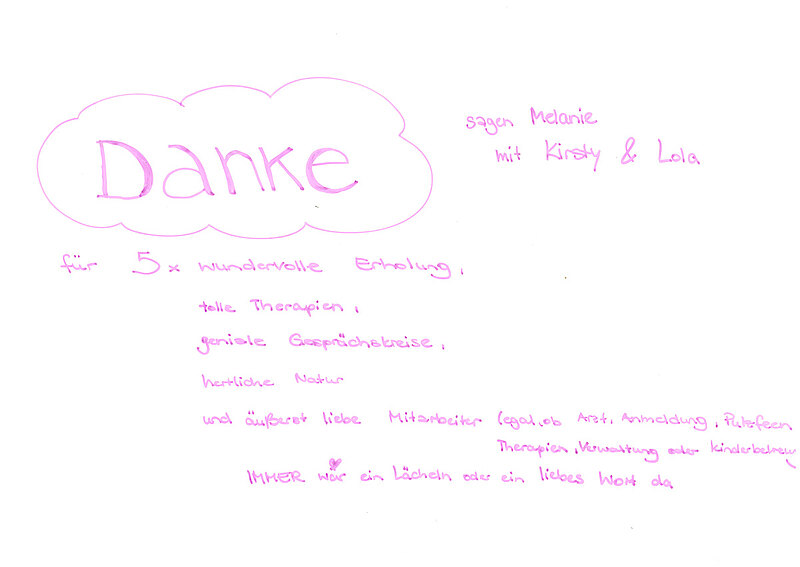 Danke
sagen Melanie
mit Kirsty & Lola
für 5x wundervolle Erholung,
tolle Therapien,
geniale Gesprächskreise,
herrliche Natur
und äußerst liebe Mitarbeiter (egal, ob Arzt, Anmeldung, Putzfeen
Therapien, Verwaltung oder Kinderbetreu
IMMER war ein Lächeln oder ein liebes Wort da